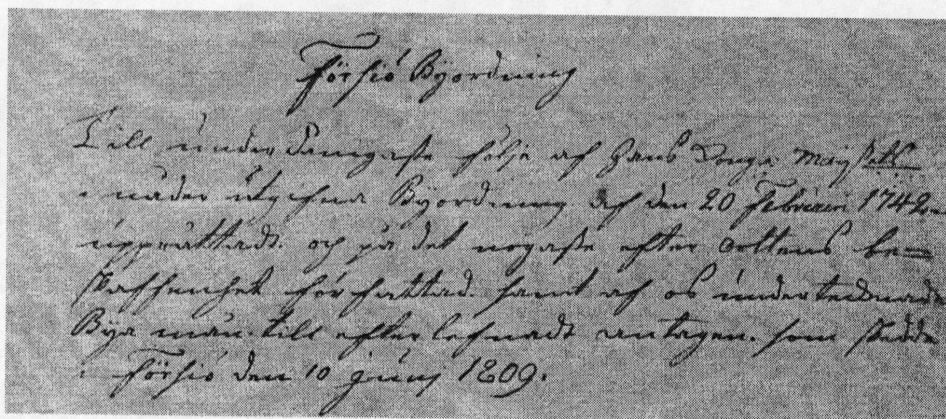 Försiö Byordning
Till underdånigaste följe af Hans Kongl. Maij:stetts
i nåder utgifna Byordning af den 20 Februrii 1742.
upprättadt. och på det nogaste efter Orttens be=
skaffenhet författad. samt af os undertecknade
Bya män till efterlefnadt antagen. som skedde
i Försiö den 10 Junij 1809.